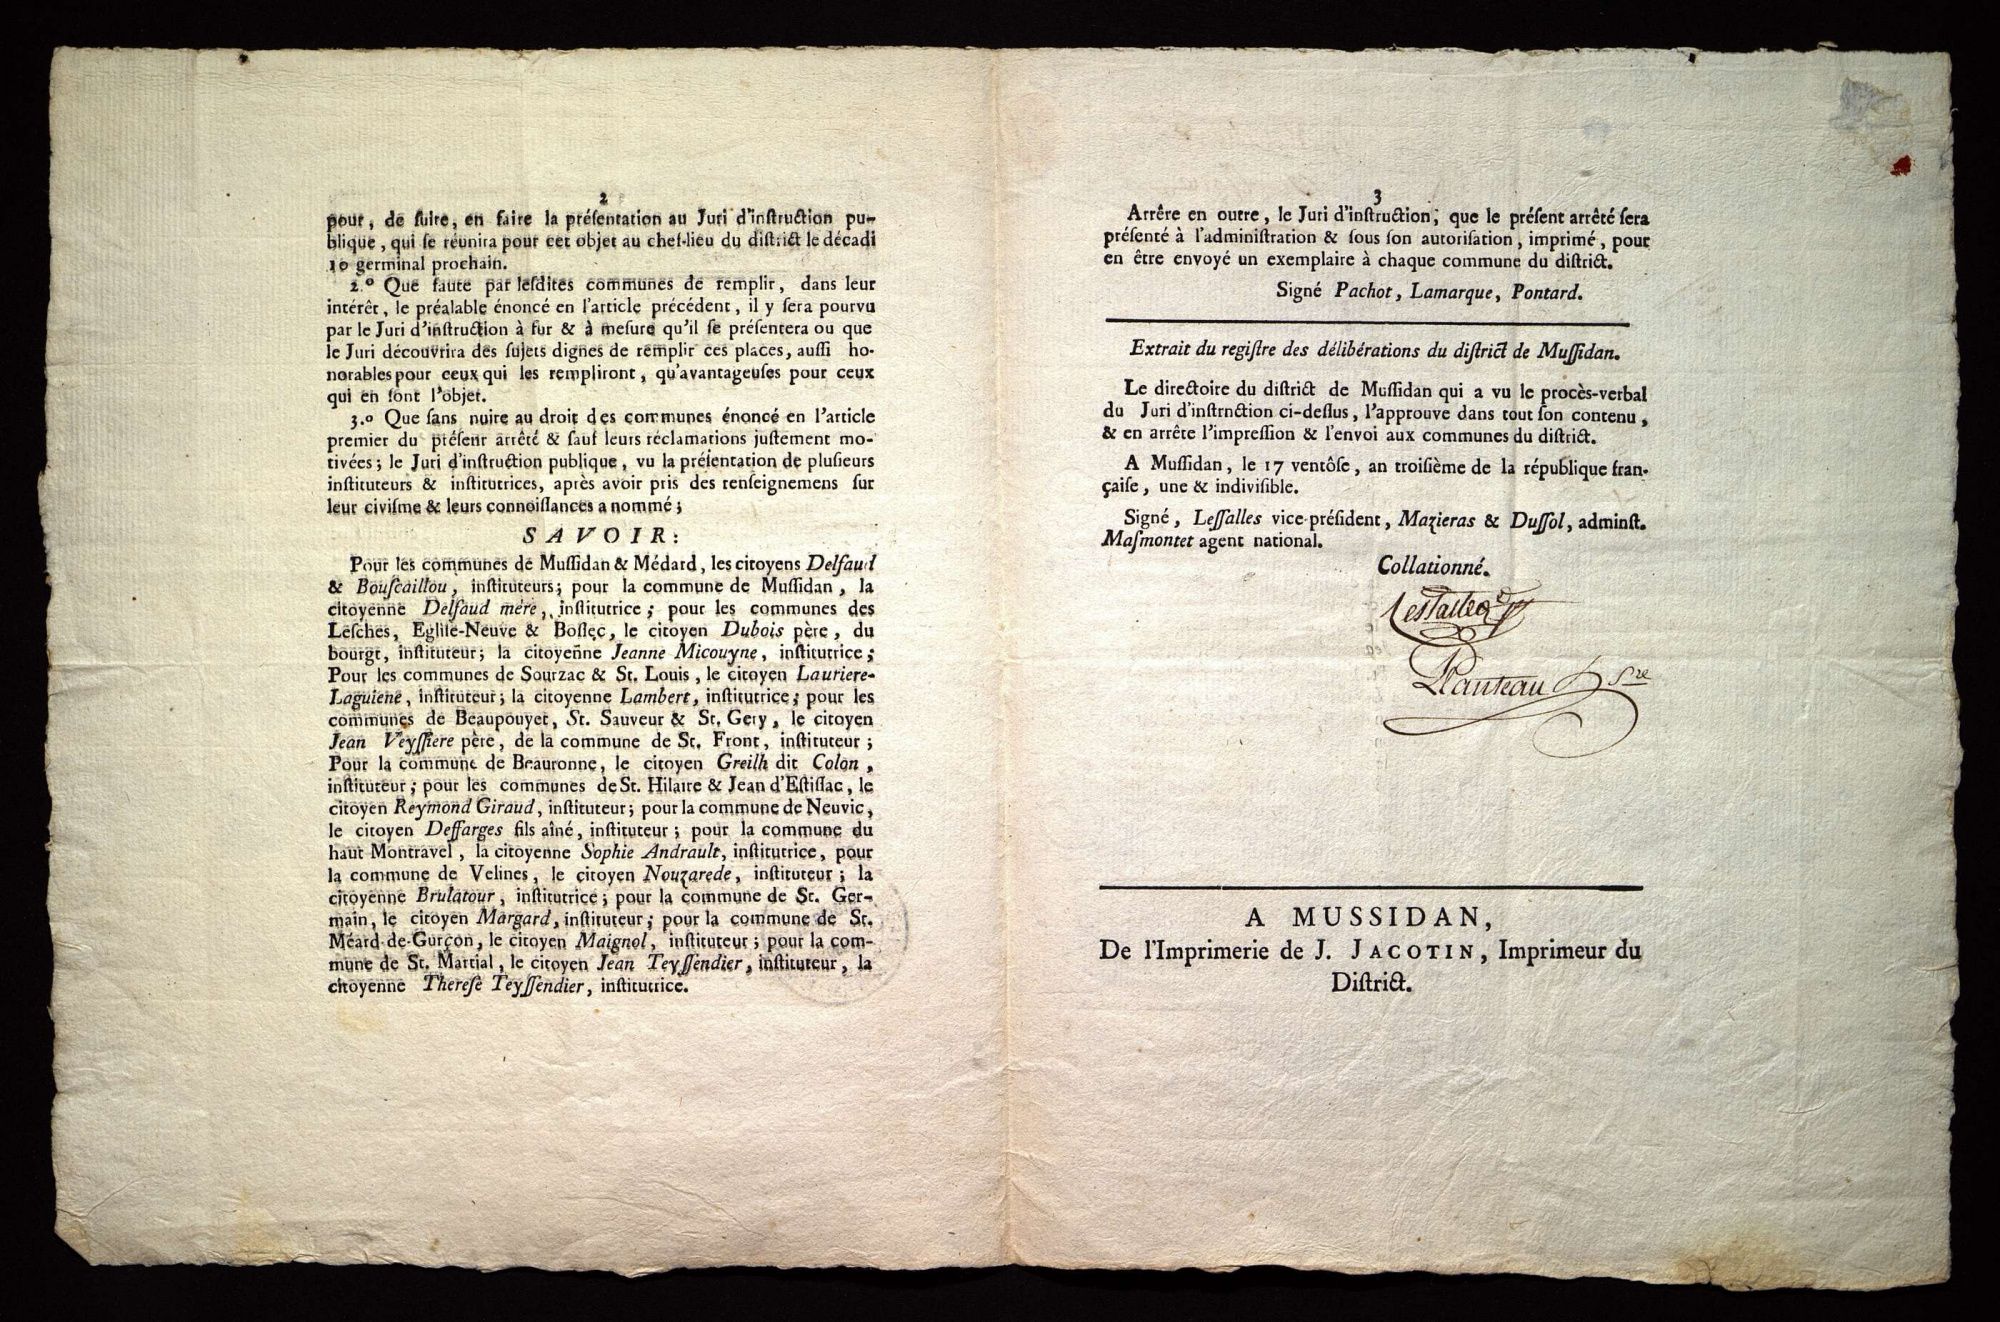 2
pour, de ſuite, en faire la préſentation au Juri d'inſtruction pu-
blique, qui ſe réunira pour cet objet au chef-lieu du diſtrict le décadi
10 germinal prochain.
2.º Que faute par leſdites communes de remplir, dans leur
intérêt, le préalable énoncé en l'article précédent, il y ſera pourvu
par le Juri d'inſtruction à fur & à meſure qu'il ſe préſentera ou que
le Juri découvrira des ſujets dignes de remplir ces places, auſſi ho-
norables pour ceux qui les rempliront, qu'avantageuſes pour ceux
qui en ſont l'objet.
3.º Que ſans nuire au droit des communes énoncé en l'article
premier du préſent arrêté & ſauf leurs réclamations juſtement mo-
tivées; le Juri d'inſtruction publique, vu la préſentation de pluſieurs
inſtituteurs & inſtitutrices, après avoir pris des renſeignemens ſur
leur civiſme & leurs connoiſſances a nommé;
SAVOIR:
Pour les communes de Muſſidan & Médard, les citoyens Delfaud
& Bouſcaillou, inſtituteurs; pour la commune de Muſſidan, la
citoyenne Delfaud mère, inſtitutrice; pour les communes des
Leſches, Egliſe-Neuve & Boſſec, le citoyen Dubois père, du
bourgt, inſtituteur; la citoyenne Jeanne Micouyne, inſtitutrice;
Pour les communes de Sourzac & St. Louis, le citoyen Lauriere-
Laguiene, inſtituteur; la citoyenne Lambert, inſtitutrice; pour les
communes de Beaupouyet, St. Sauveur & St. Gery, le citoyen
Jean Veyſſiere père, de la commune de St. Front, inſtituteur;
Pour la commune de Beauronne, le citoyen Greilh dit Colon,
inſtituteur; pour les communes de St. Hilaire & Jean d'Eſtiſſac, le
citoyen Reymond Giraud, inſtituteur; pour la commune de Neuvic,
le citoyen Deffarges fils aîné, inſtituteur; pour la commune du
haut Montravel, la citoyenne Sophie Andrault, inſtitutrice, pour
la commune de Velines, le citoyen Nouzarede, inſtituteur; la
citoyenne Brulatour, inſtitutrice; pour la commune de St. Ger-
main, le citoyen Margard, inſtituteur; pour la commune de St.
Méard-de-Gurçon, le citoyen Maignol, inſtituteur; pour la com-
mune de St. Martial, le citoyen Jean Teyſſendier, inſtituteur, la
citoyenne Thereſe Teyſſendier, inſtitutrice.
3
Arrêre en outre, le Juri d'inſtruction, que le préſent arrêté ſera
préſenté à l'adminiſtration & ſous ſon autoriſation, imprimé, pour
en être envoyé un exemplaire à chaque commune du diſtrict.
Signé Pachot, Lamarque, Pontard.
Extrait du regiſtre des délibérations du diſtrict de Muſſidan.
Le directoire du diſtrict de Muſſidan qui a vu le procès-verbal
du Juri d'inſtrnction ci-deſſus, l'approuve dans tout ſon contenu,
& en arrête l'impreſſion & l'envoi aux communes du diſtrict.
A Muſſidan, le 17 ventôſe, an troiſième de la république fran-
çaiſe, une & indiviſible.
Signé, Leſſalles vice-préſident, Mazieras & Duſſol, adminſt.
Maſmontet agent national.
Collationné.
Planteau Sre
A MUSSIDAN,
De l'Imprimerie de J. JACOTIN, Imprimeur du
Diſtrict.